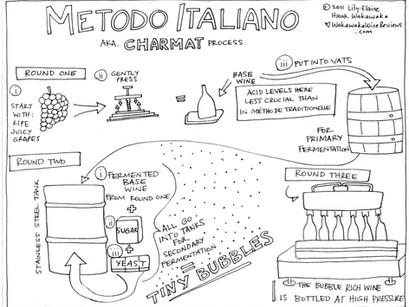 METODO ITALIANO
AKA. CHARMAT PROCESS
© 2011 Lily-Elaine
Hawk Wakawaka
WakawakaWineReviews
.com
ROUND ONE
i
START
WITH:
RIPE
JUICY
GRAPES
ii
GENTLY
PRESS
=
BASE
WINE
iii PUT INTO VATS
ACID LEVELS HERE
LESS CRUCIAL THAN
IN MÉTHODE TRADITIONELLE
FOR
PRIMARY
FERMENTATION
ROUND TWO
STAINLESS STEEL TANK
i FERMENTED
BASE
WINE
FROM ROUND ONE
+
ii SUGAR
+
iii YEAST
ALL GO
INTO TANKS
FOR
SECONDARY
FERMENTATION
=
TINY BUBBLES
ROUND THREE
THE BUBBLE RICH WINE
IS BOTTLED AT HIGH PRESSURE